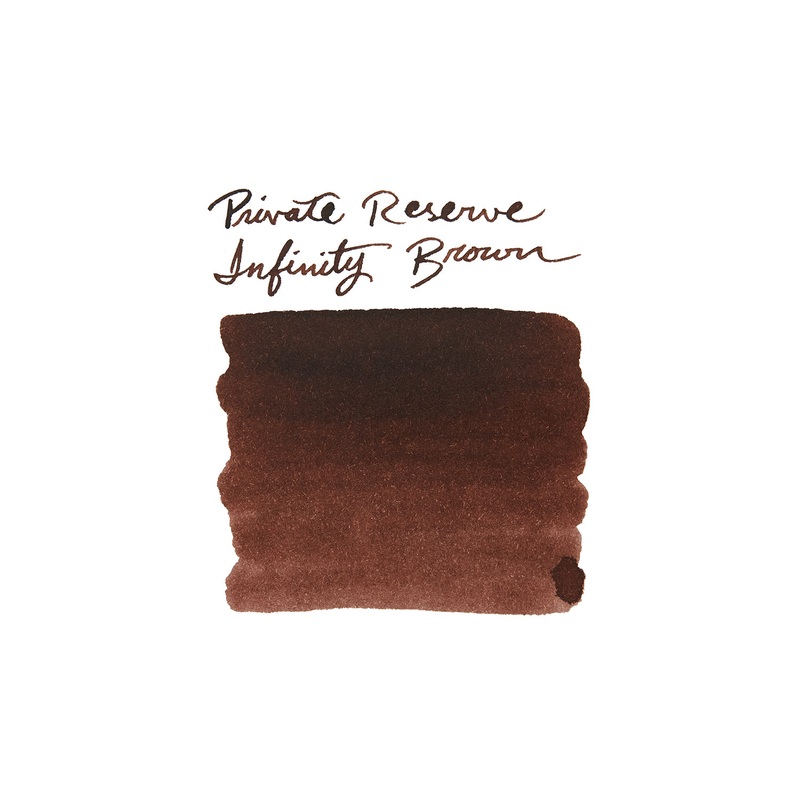 Private Reserve
Infinity Brown